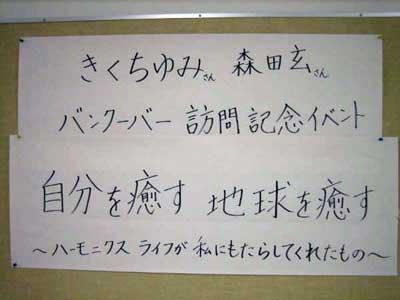 きくちゆみさん 森田玄さん
バンクーバー 訪問記念イベント
自分を癒す 地球を癒す
～ハーモニクス ライフが 私にもたらしてくれたもの～